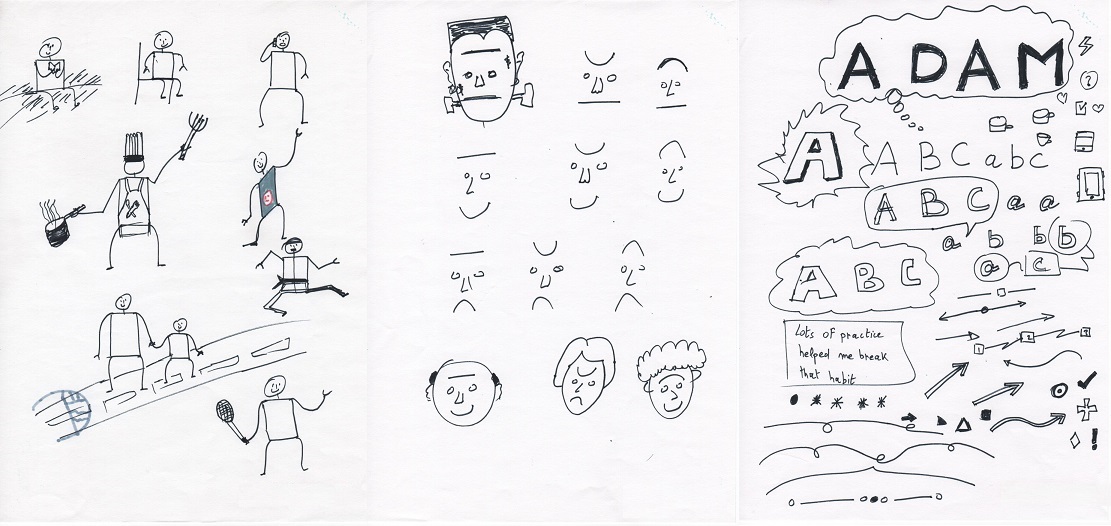 ADAM
?
A
A B C a b c
A B C a a
a b b b
a c
A B C
1 2 3
Lots of practice
helped me break
that habit
!